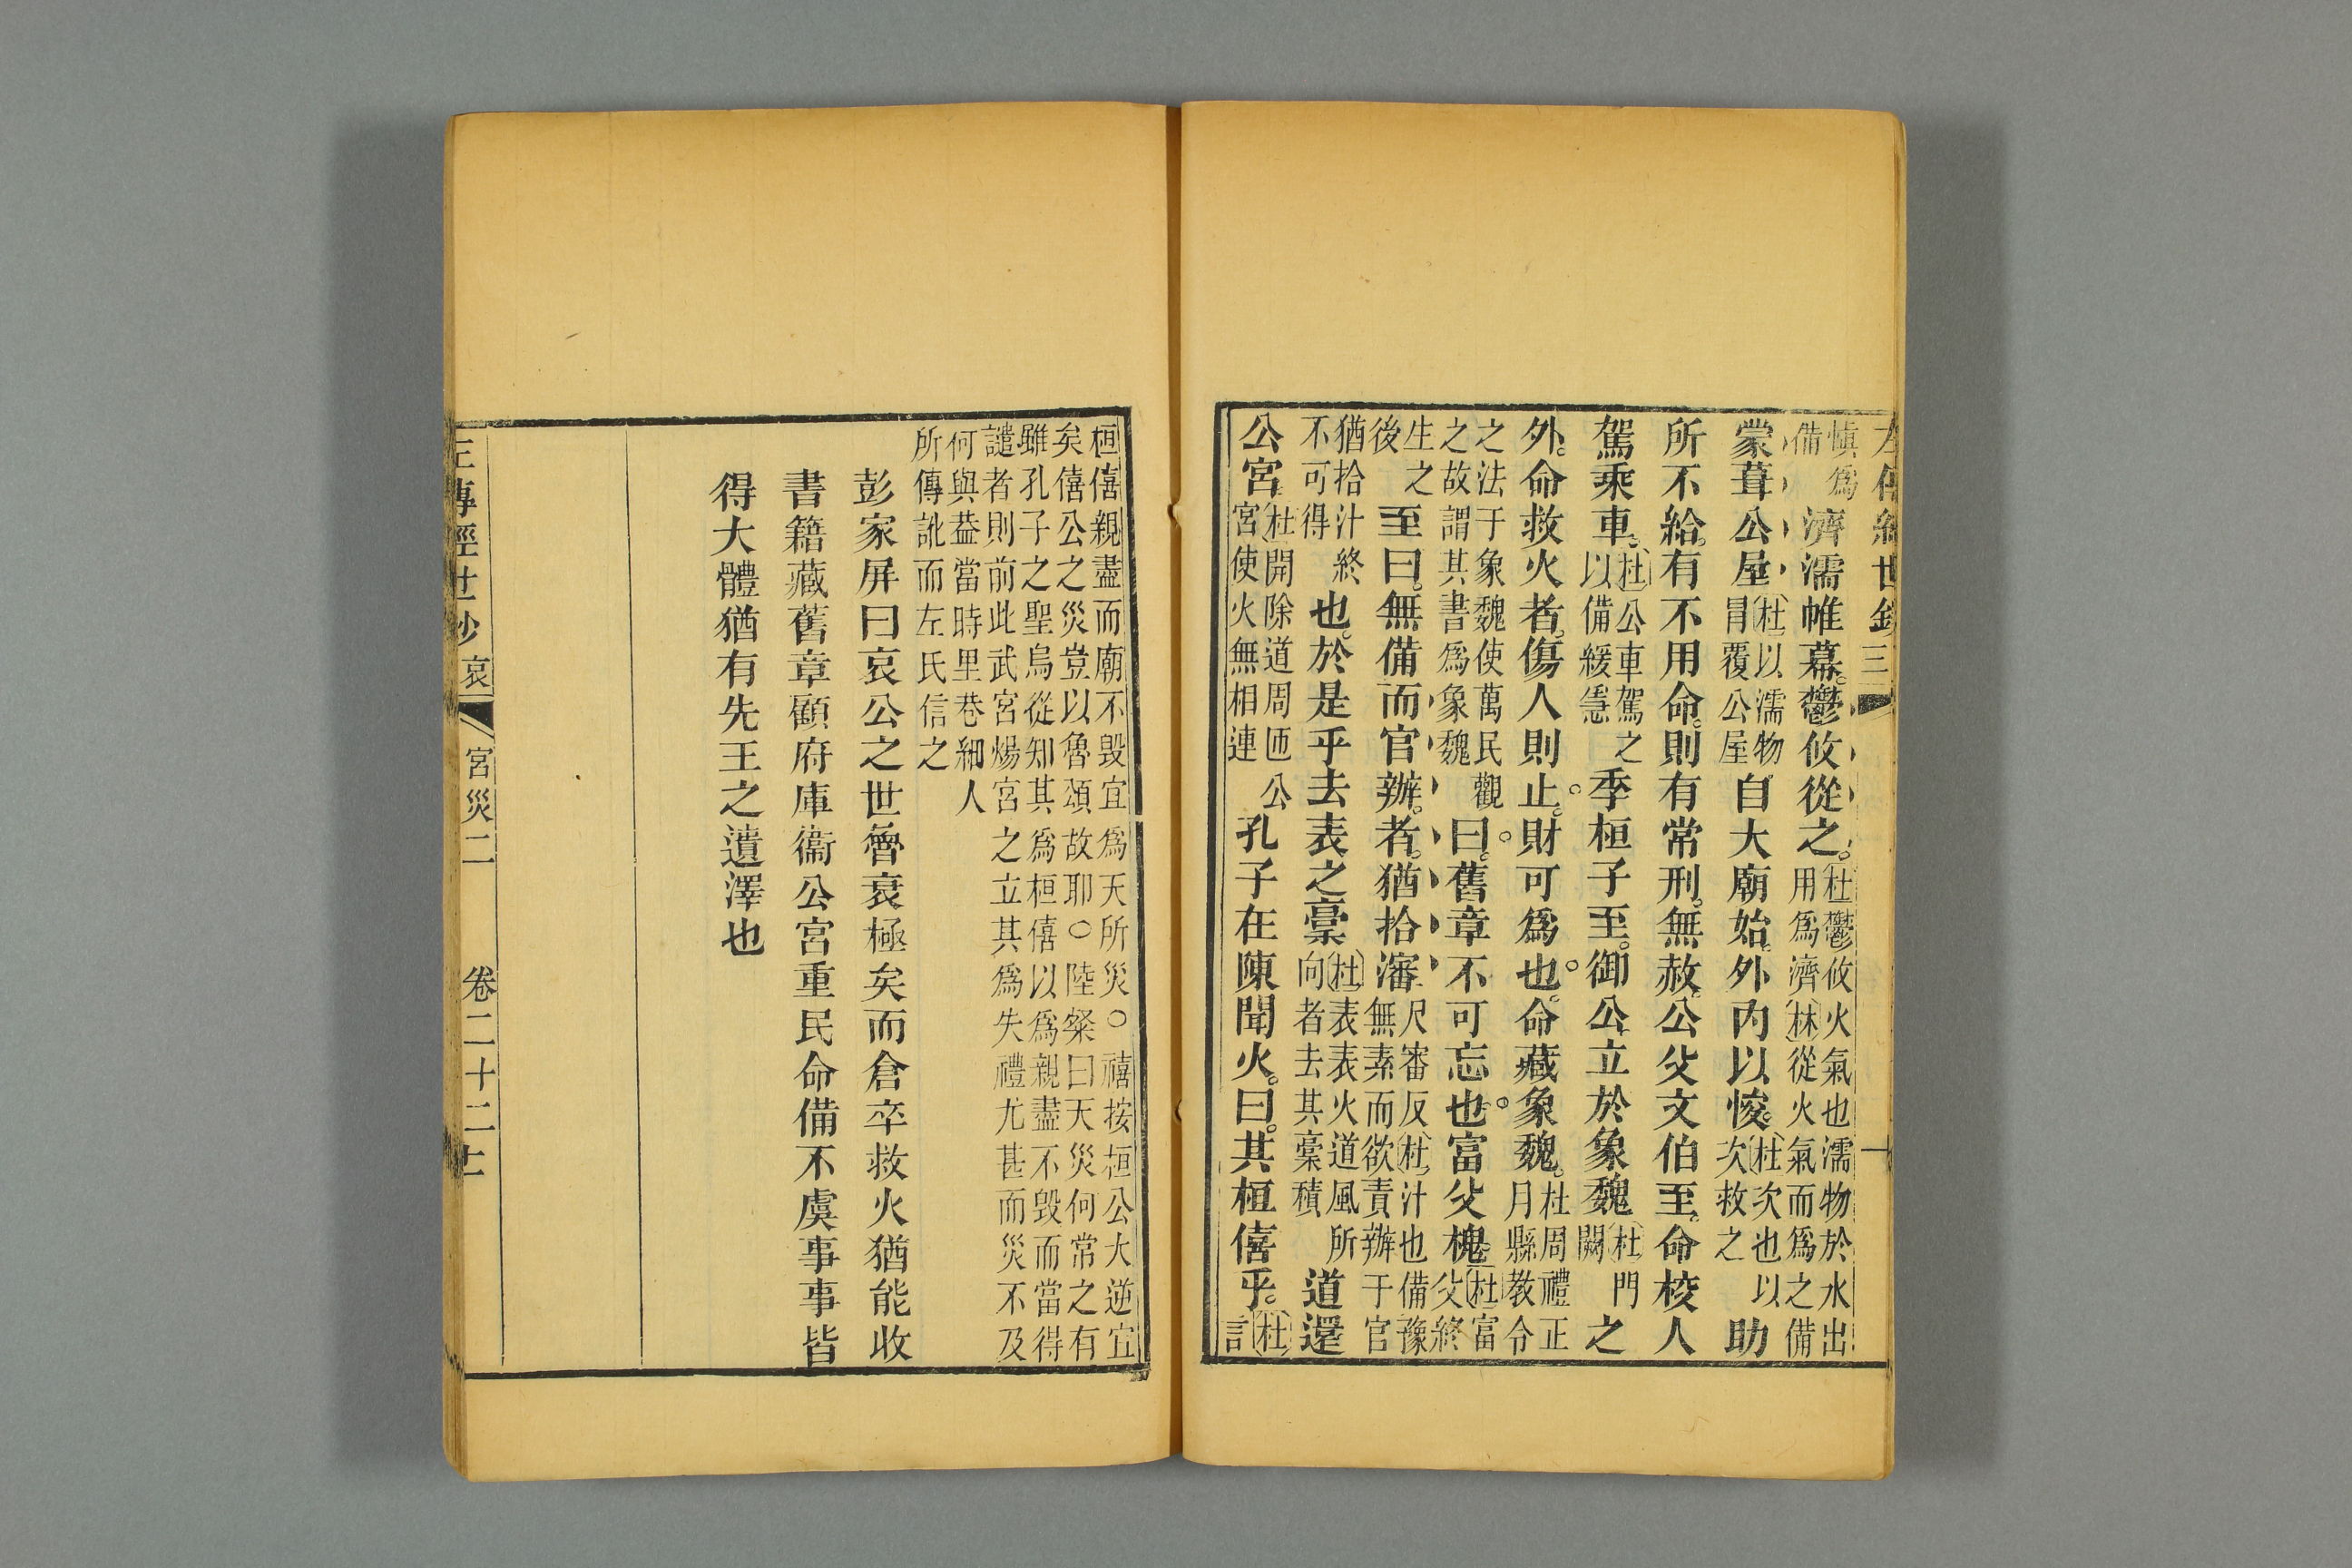 左傳經世鈔 三
慎爲備濟濡帷幕。鬱攸從之。杜鬱攸火氣也濡物於水出用爲濟林從火氣而爲之備
蒙葺公屋杜以濡物冒覆公屋自大廟始。外內以悛。杜次也以次救之助
所不給。有不用命。則有常刑。無赦。公父文伯至。命校人
駕乘車。杜公車駕之以備緩急季桓子至。御公立於象魏杜門闕之
外。命救火者。傷人則止。財可爲也。命藏象魏。杜周禮正月縣教令
之法于象魏使萬民觀之故謂其書爲象魏曰。舊章不可忘也。富父槐至杜富父終
生之後至曰。無備而官辦者。猶拾瀋尺審反杜汁也備豫無素而欲責辦于官
猶拾汁終不可得也。於是乎去表之稾杜表表火道風所向者去其稾積道還
公宮杜開除道周匝公宮使火無相連孔子在陳聞火。曰。其桓僖乎。杜言
桓僖親盡而廟不毀宜爲天所災○禧按桓公大逆宜
矣僖公之災豈以魯頌故耶○陸粲曰天災何常之有
雖孔子之聖烏從知其爲桓僖以爲親盡不毀而當得
譴者則前此武宮煬宮之立其爲失禮尤甚而災不及
何與葢當時里巷細人
所傳訛而左氏信之
彭家屏曰哀公之世魯衰極矣而倉卒救火猶能收
書籍藏舊章顧府庫衞公宮重民命備不虞事事皆
得大體猶有先王之遺澤也
左傳經世鈔 哀 宮災二 卷二十二